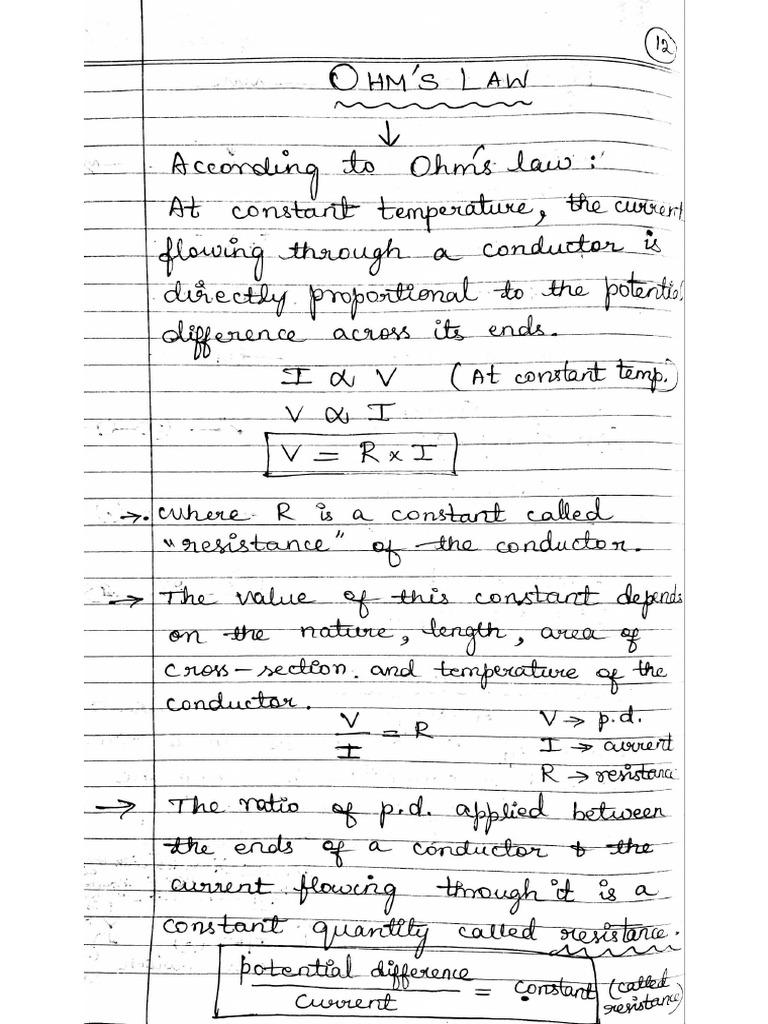 12
OHM'S LAW
↓
According to Ohm's law:
At constant temperature, the current
flowing through a conductor is
directly proportional to the potential
difference across its ends.
I ∝ V (At constant temp.)
V ∝ I
V = R × I
→. where R is a constant called
"resistance" of the conductor.
→ The value of this constant depends
on the nature, length, area of
cross-section. and temperature of the
conductor.
V/I = R
V → p.d.
I → current
R → resistance
→ The ratio of p.d. applied between
the ends of a conductor & the
current flowing through it is a
constant quantity called resistance.
potential difference/current = constant (called resistance)